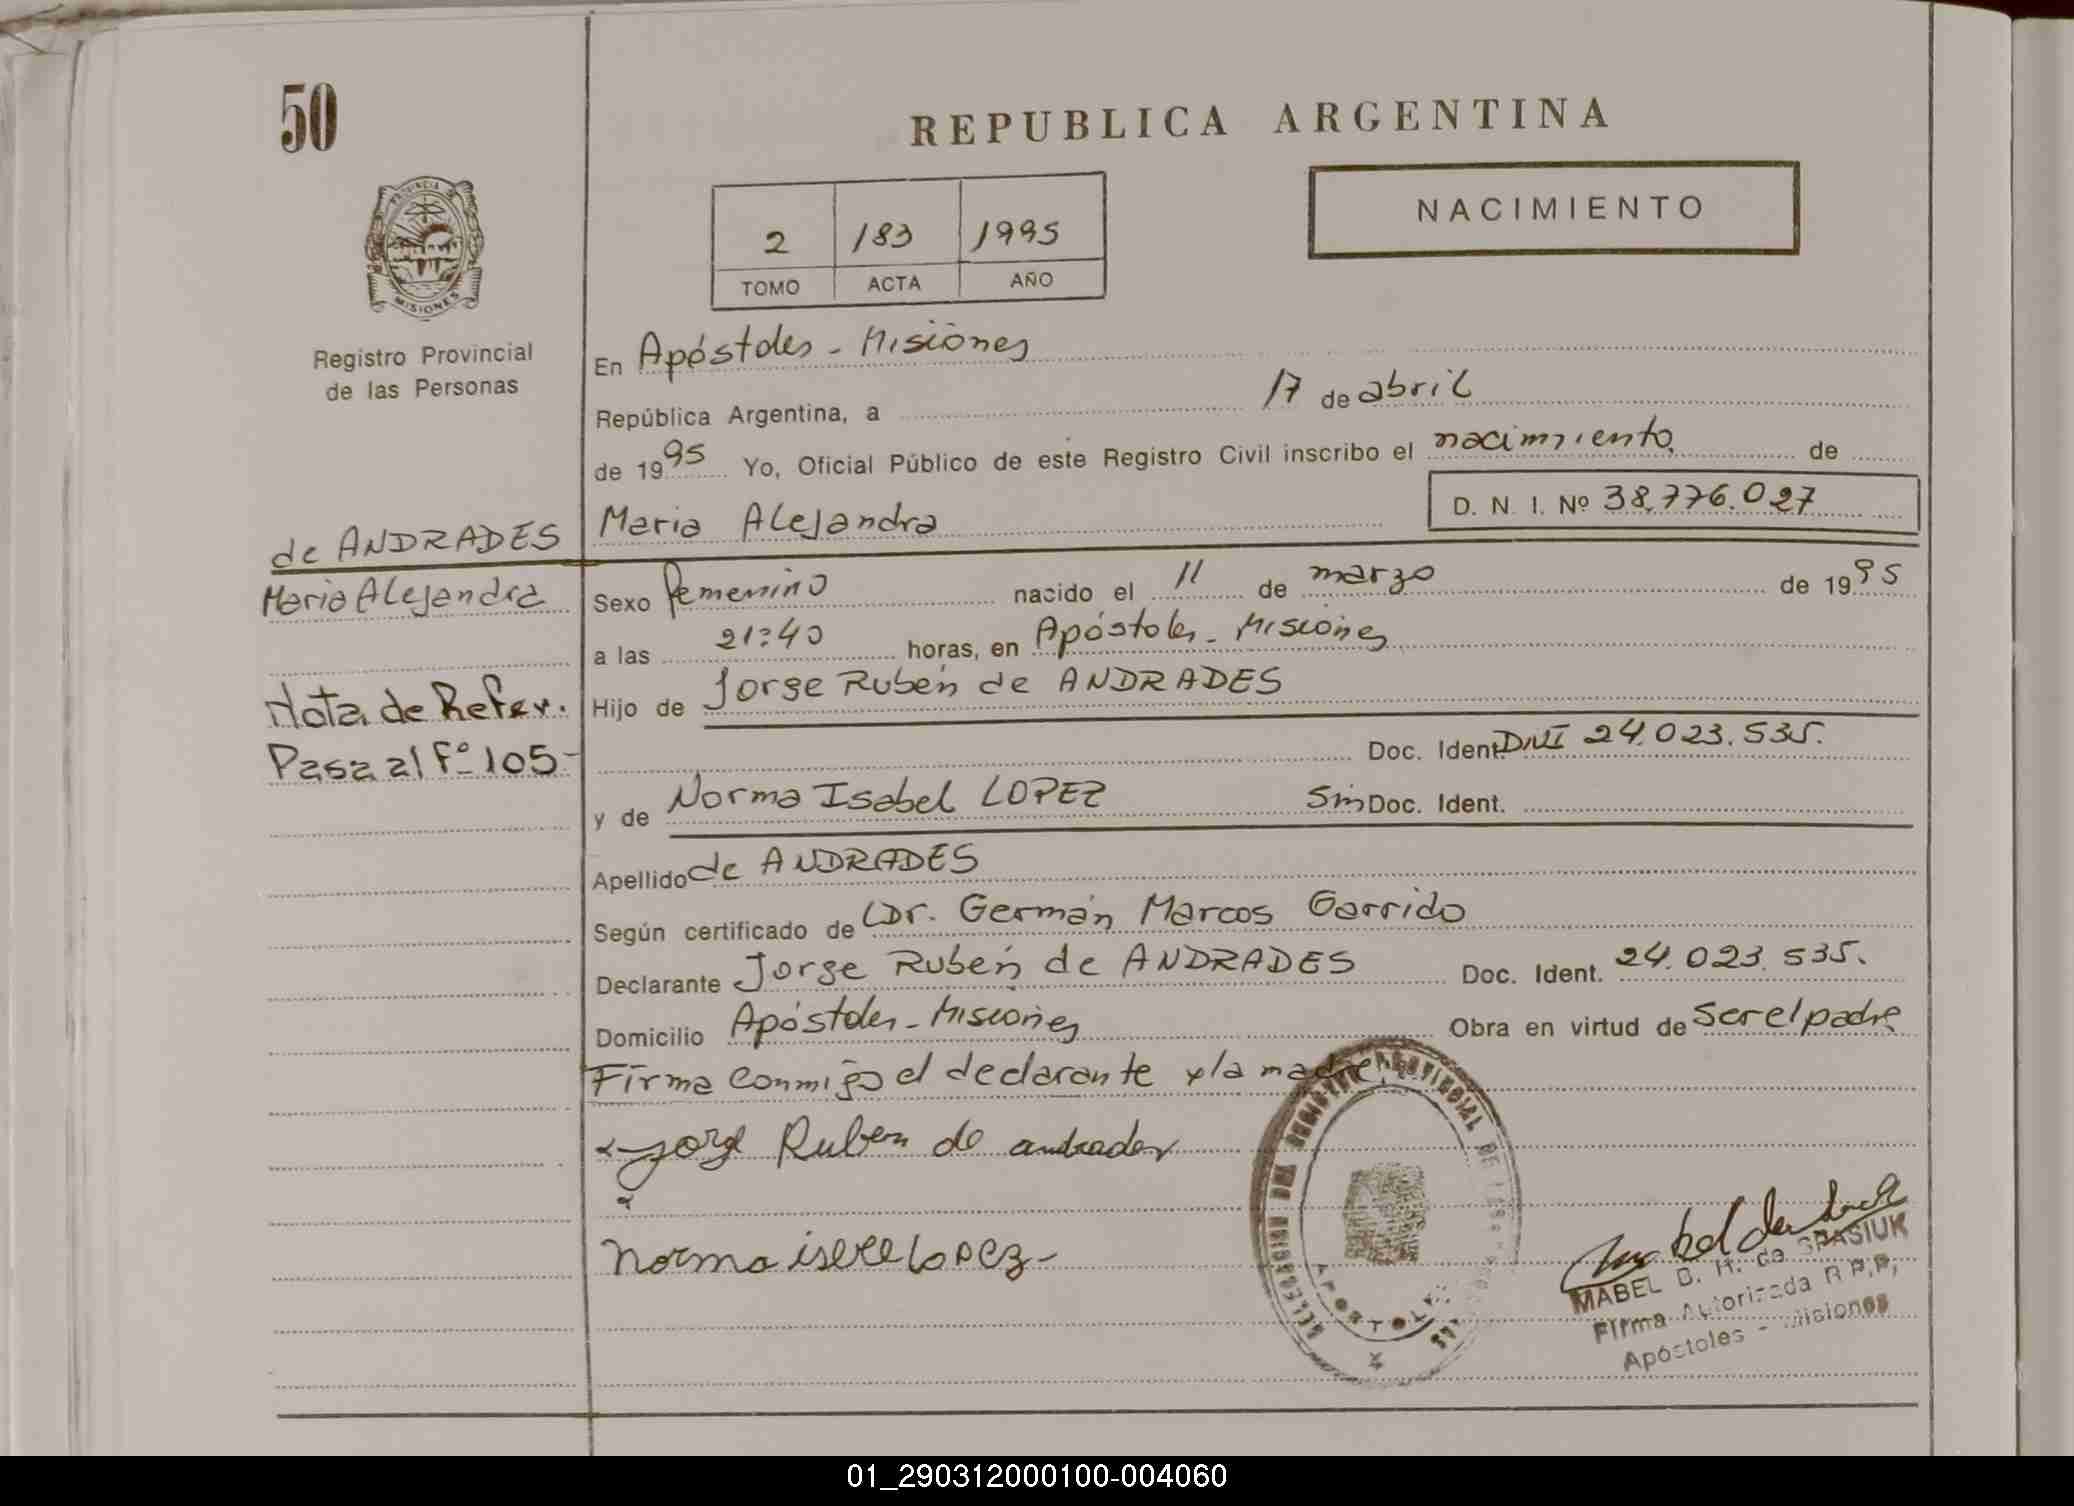 50
REPUBLICA ARGENTINA
NACIMIENTO
2 183 1995
TOMO ACTA AÑO
PROVINCIA DE
MISIONES
Registro Provincial
de las Personas
En Apóstoles - Misiones
República Argentina, a 17 de abril
de 1995 Yo, Oficial Público de este Registro Civil inscribo el nacimiento, de
D. N. I. Nº 38.776.027
de ANDRADES
Maria Alejandra
Maria Alejandra
Sexo femenino nacido el 11 de marzo de 1995
a las 21:40 horas, en Apóstoles - Misiones
Nota de Refer.
Pasa al Fº 105-
Hijo de Jorge Rubén de ANDRADES
Doc. Ident. DNI 24.023.535.
y de Norma Isabel LOPEZ Sin Doc. Ident.
Apellido de ANDRADES
Según certificado de Dr. Germán Marcos Garrido
Declarante Jorge Rubén de ANDRADES Doc. Ident. 24.023.535.
Domicilio Apóstoles - Misiones Obra en virtud de ser el padre
Firma conmigo el declarante y la madre.
Jorge Ruben de andrades
Norma isabel Lopez-
DEL REGISTRO PROVINCIAL DE LAS
APOSTOLES
MABEL B. H. de SPASIUK
Firma Autorizada R.P.P.
Apóstoles - Misiones
01_290312000100-004060